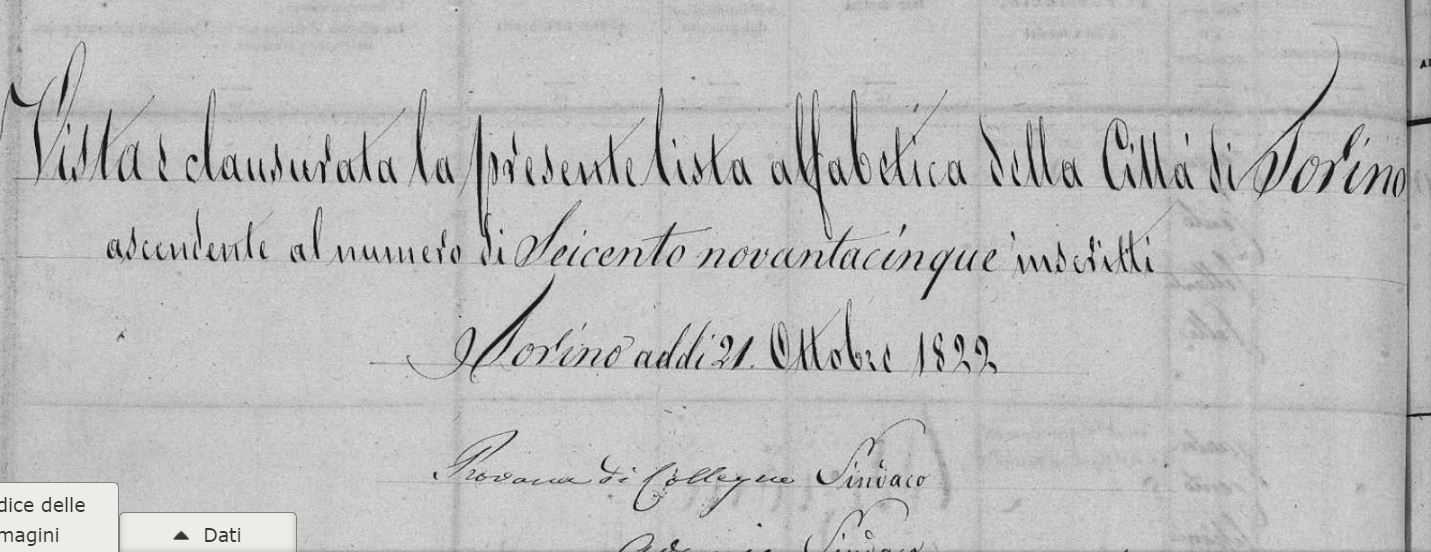 Vista e clausurata la presente lista alfabetica della Città di Torino
ascendente al numero di Seicento novantacinque inscritti
Torino addi 21. Ottobre 1822
Provana di Collegno Sindaco
Sindaco
dice delle
magini
Dati